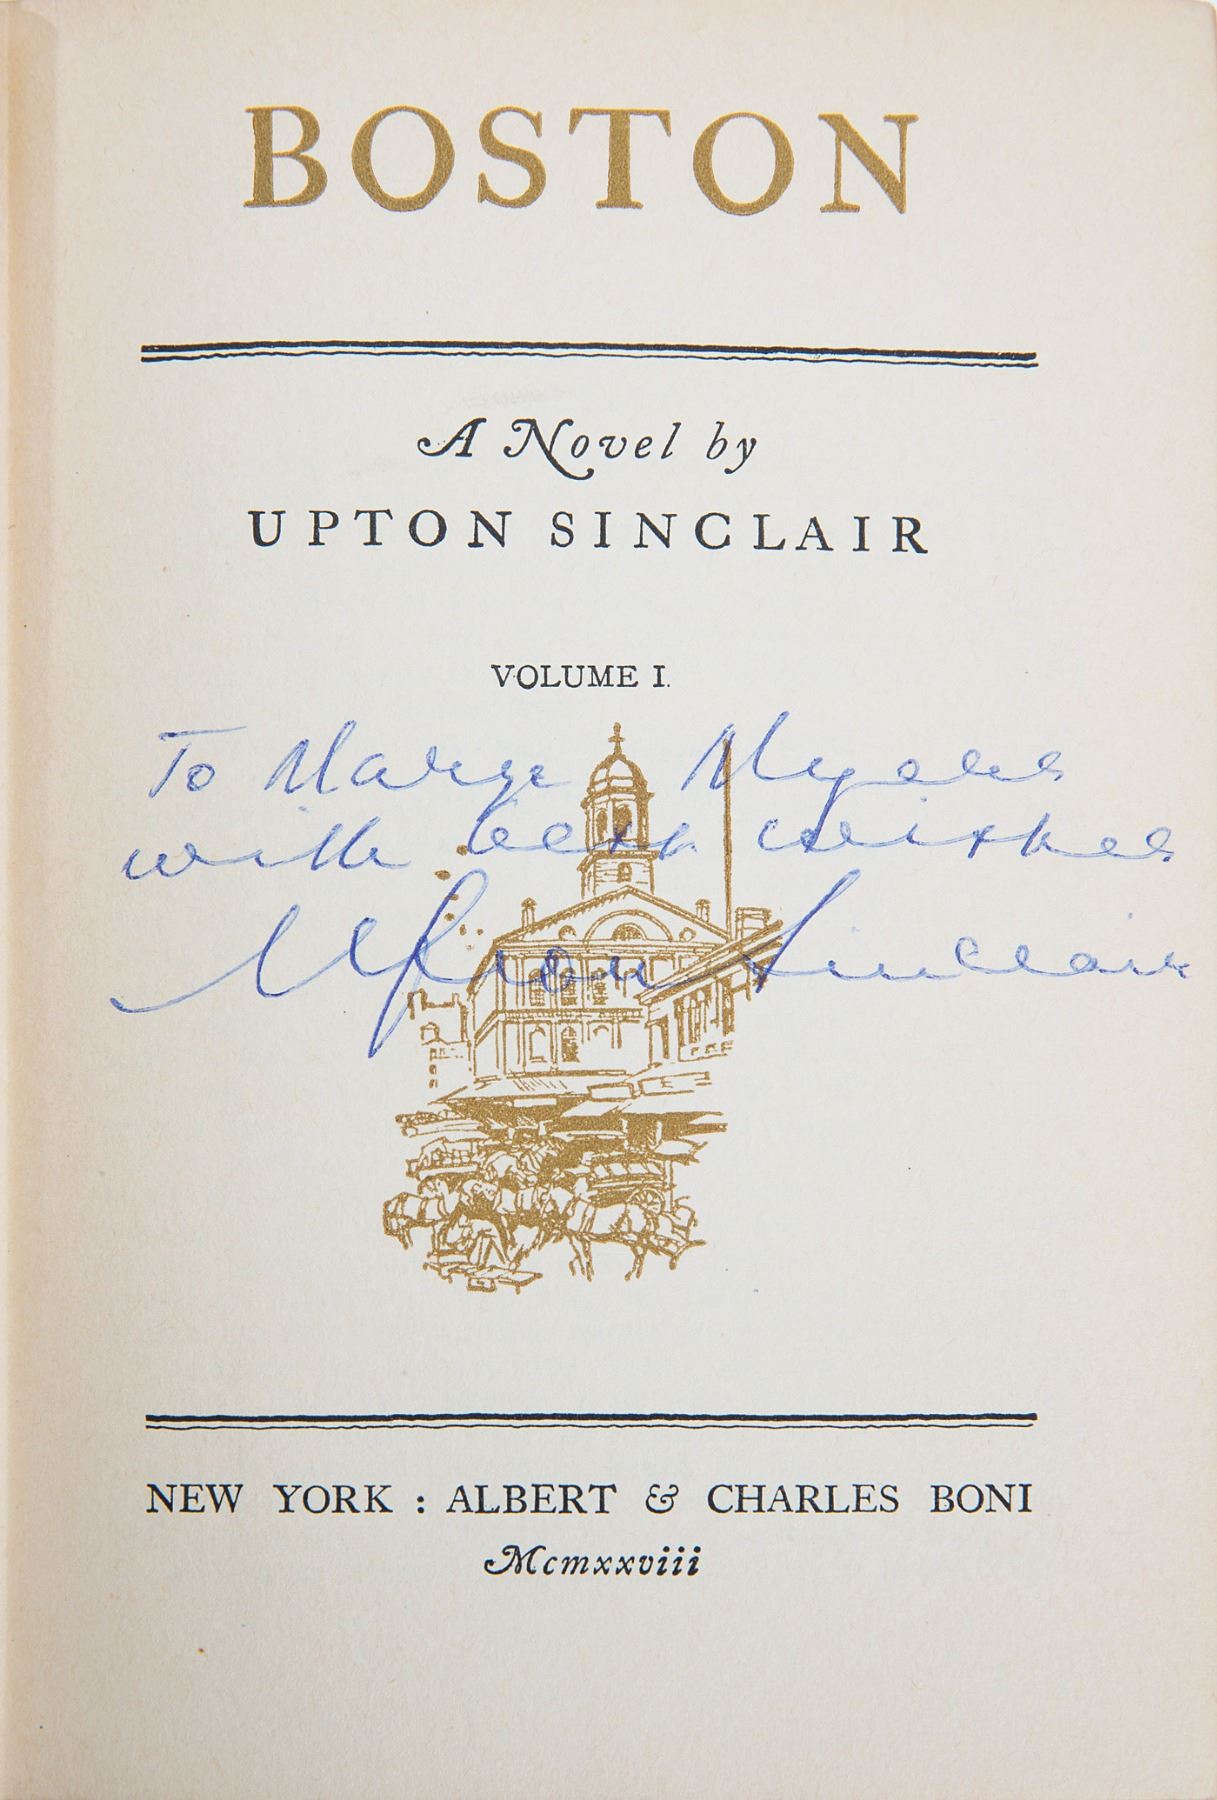 BOSTON
A Novel by
UPTON SINCLAIR
VOLUME I.
To Marge Myers
with best wishes
Upton Sinclair
NEW YORK : ALBERT & CHARLES BONI
Mcmxxviii